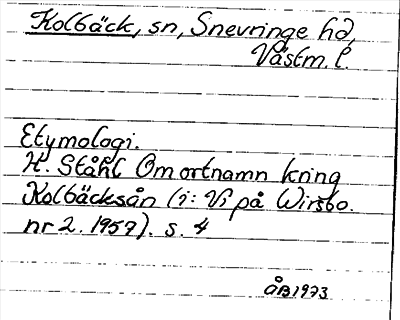 Kolbäck, sn, Snevringe hd,
Västm. l.
Etymologi.
H. Ståhl Om ortnamn kring
Kolbäcksån (i: Vi på Wirsbo.
nr 2. 1957). s. 4
ÅB1973